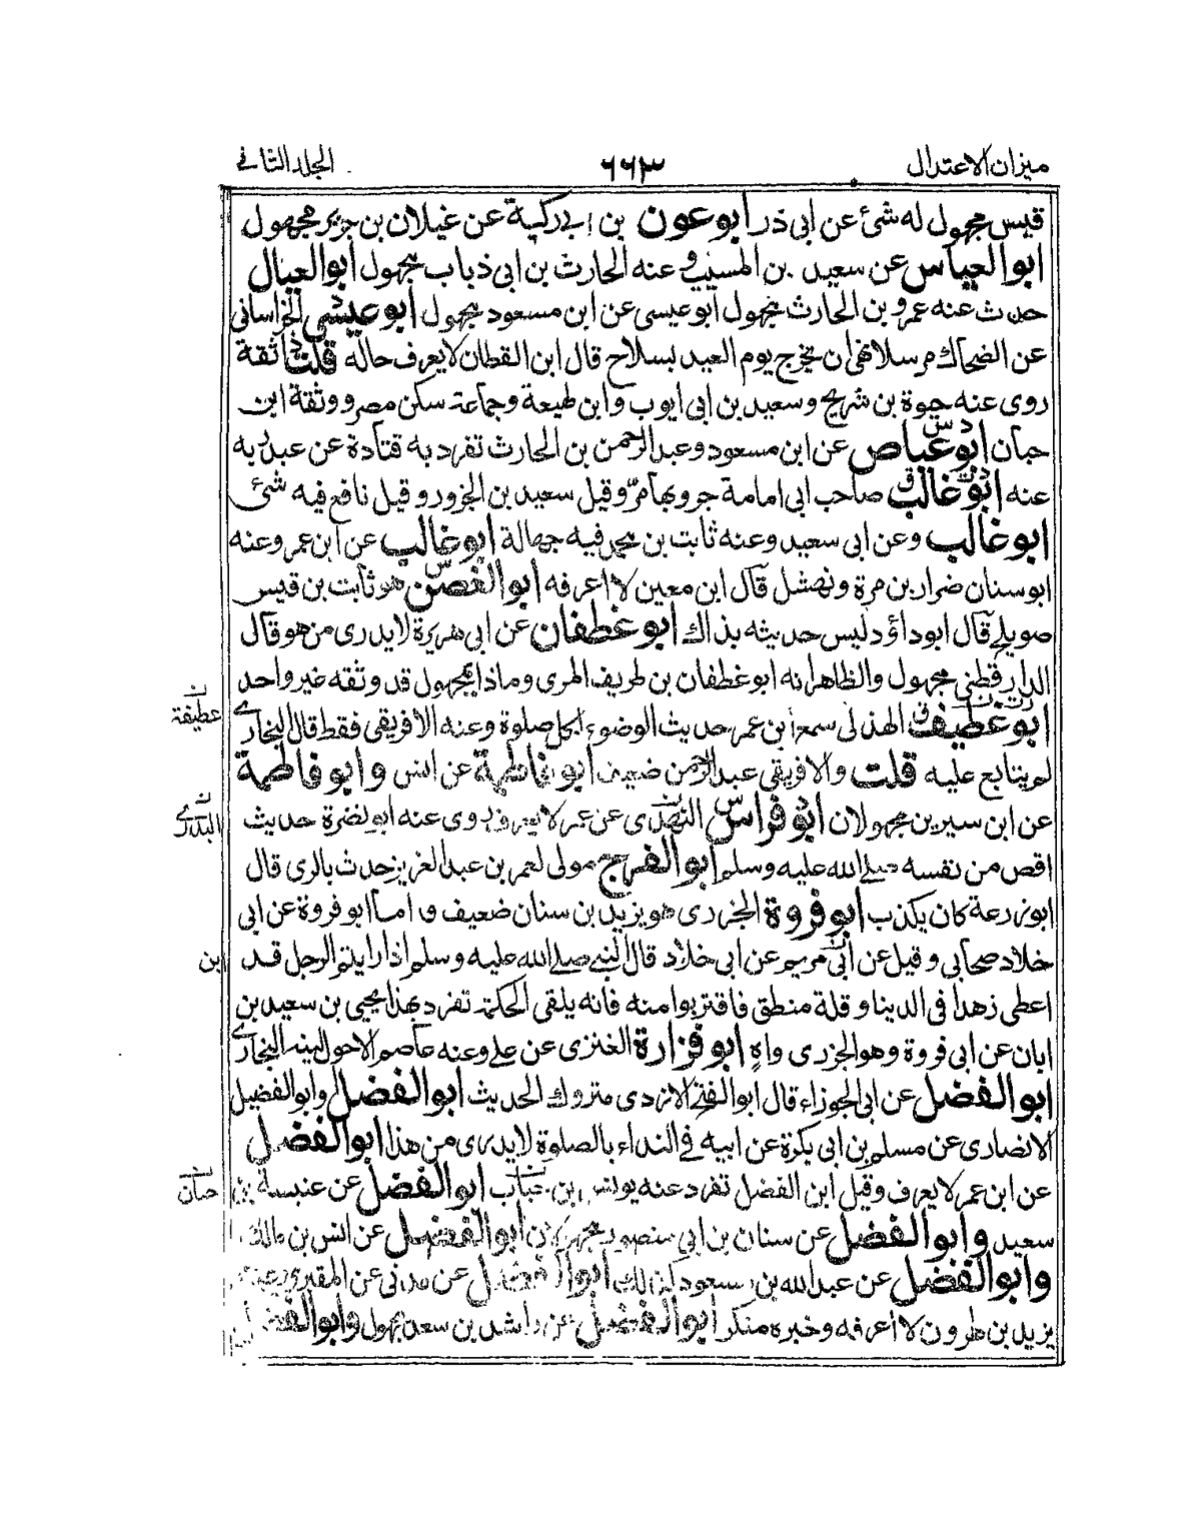 ميزان الاعتدال
٦٦٣
الجلد الثاني
قيس مجهول له شئ عن ابى ذر ابو عون بن ابي ركبة عن غيلان بن جرير مجهول
ابو العياس عن سعيد بن المسيب وعنه الحارث بن ابى ذباب مجهول ابو العيال
حدث عنه عمرو بن الحارث مجهول ابو عيسى عن ابن مسعود مجهول ابو عيسى الخراسانى
عن الضحاك مرسلا نهى ان يخرج يوم العيد بسلاح قال ابن القطان لا يعرف حاله قلت ثقة
روى عنه حيوة بن شريح وسعيد بن ابى ايوب وابن لهيعة وجماعة سكن مصر ووثقه ابن
حبان ابو عياض عن ابن مسعود وعبد الرحمن بن الحارث تفرد به قتادة عن عبد ربه
عنه ابو غالب صاحب ابى امامة حزور بها مر وقيل سعيد بن الحزور وقيل نافع فيه شئ
ابو غالب وعن ابى سعيد وعنه ثابت بن محمد فيه جهالة ابو غالب عن ابن عمر وعنه
ابو سنان ضرار بن مرة ونهشل قال ابن معين لا اعرفه ابو الغصن هو ثابت بن قيس
صويلح قال ابو داؤد ليس حديثه بذاك ابو غطفان عن ابى هريرة لا يدرى من هو قال
الدارقطني مجهول والظاهر انه ابو غطفان بن طريف المرى وماذا بمجهول قد وثقه غير واحد
ابو غطيف الهذلى سمع ابن عمر حديث الوضوء لكل صلوة وعنه الافريقى فقط قال البخارى
لم يتابع عليه قلت والافريقى عبد الرحمن ضعيف ابو فاطمة عن انس وابو فاطمة
عن ابن سيرين مجهولان ابو فراس النهدى عن عمر لا يعرف روى عنه ابو نضرة حديث
اقص من نفسه صلى الله عليه وسلم ابو الفرج مولى لعمر بن عبد العزيز حدث بالرى قال
ابو زرعة كان يكذب ابو فروة الجزرى هو يزيد بن سنان ضعيف واما ابو فروة عن ابى
خلاد صحابى وقيل عن ابى مريم عن ابى خلاد قال النبي صلى الله عليه وسلم اذا رايتم الرجل قد
اعطى زهدا فى الدينا وقلة منطق فاقتربوا منه فانه يلقى الحكمة تفرد بهذا يحيى بن سعيد بن
ابان عن ابى فروة وهو الجزرى واه ابو فزارة العنزى عن على وعنه عاصم الاحول لينه البخارى
ابو الفضل عن ابى الجوزاء قال ابو الفتح الازدى متروك الحديث ابو الفضل وابو الفضيل
الانصارى عن مسلم بن ابى بكرة عن ابيه فى النداء بالصلوة لا يدرى من هذا ابو الفضل
عن ابن عمر لا يعرف وقيل ابن الفضل تفرد عنه يونس بن خباب ابو الفضل عن عنبسة بن
سعيد وابو الفضل عن سنان بن ابى منصور مجهولان ابو الفضل عن انس بن مالك
وابو الفضل عن عبد الله بن مسعود كذلك ابو الفضل عن مدنى عن المقبرى
يزيد بن هرون لا اعرفه وخبره منكر ابو الفضل عن راشد بن سعد مجهول وابو الفضل
عطيفة
البكرى
بن
حبان